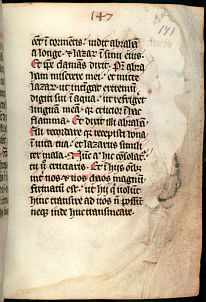 147
141
eēt ī tormētis · vidit abrahā
a longe · ⁊ lazar̄ ī sinu eius ·
Et ip̄e clamās dixit · Pr̄ abra
ham miserere mei · et mitte
lazar̄ · ut intīgat extremū
digiti sui ī aquā · ut refriget
linguā meā · q̄ crucior ī hac
flamma · Et dixit illi abrahā ·
fili recordare q̄ recepisti bona
ī vita tua · et lazarus simili
ter mala · Nūc aut̄ hic ɔ̄solat̄
tu v̄ cruciaris · Et ī hijs oīb9
int̄ nos ⁊ vos chaos magnū
firmatū est · ut hij q̄ volūt
hinc transire ad vos nō possīt
neqȝ inde huc transmeare ·